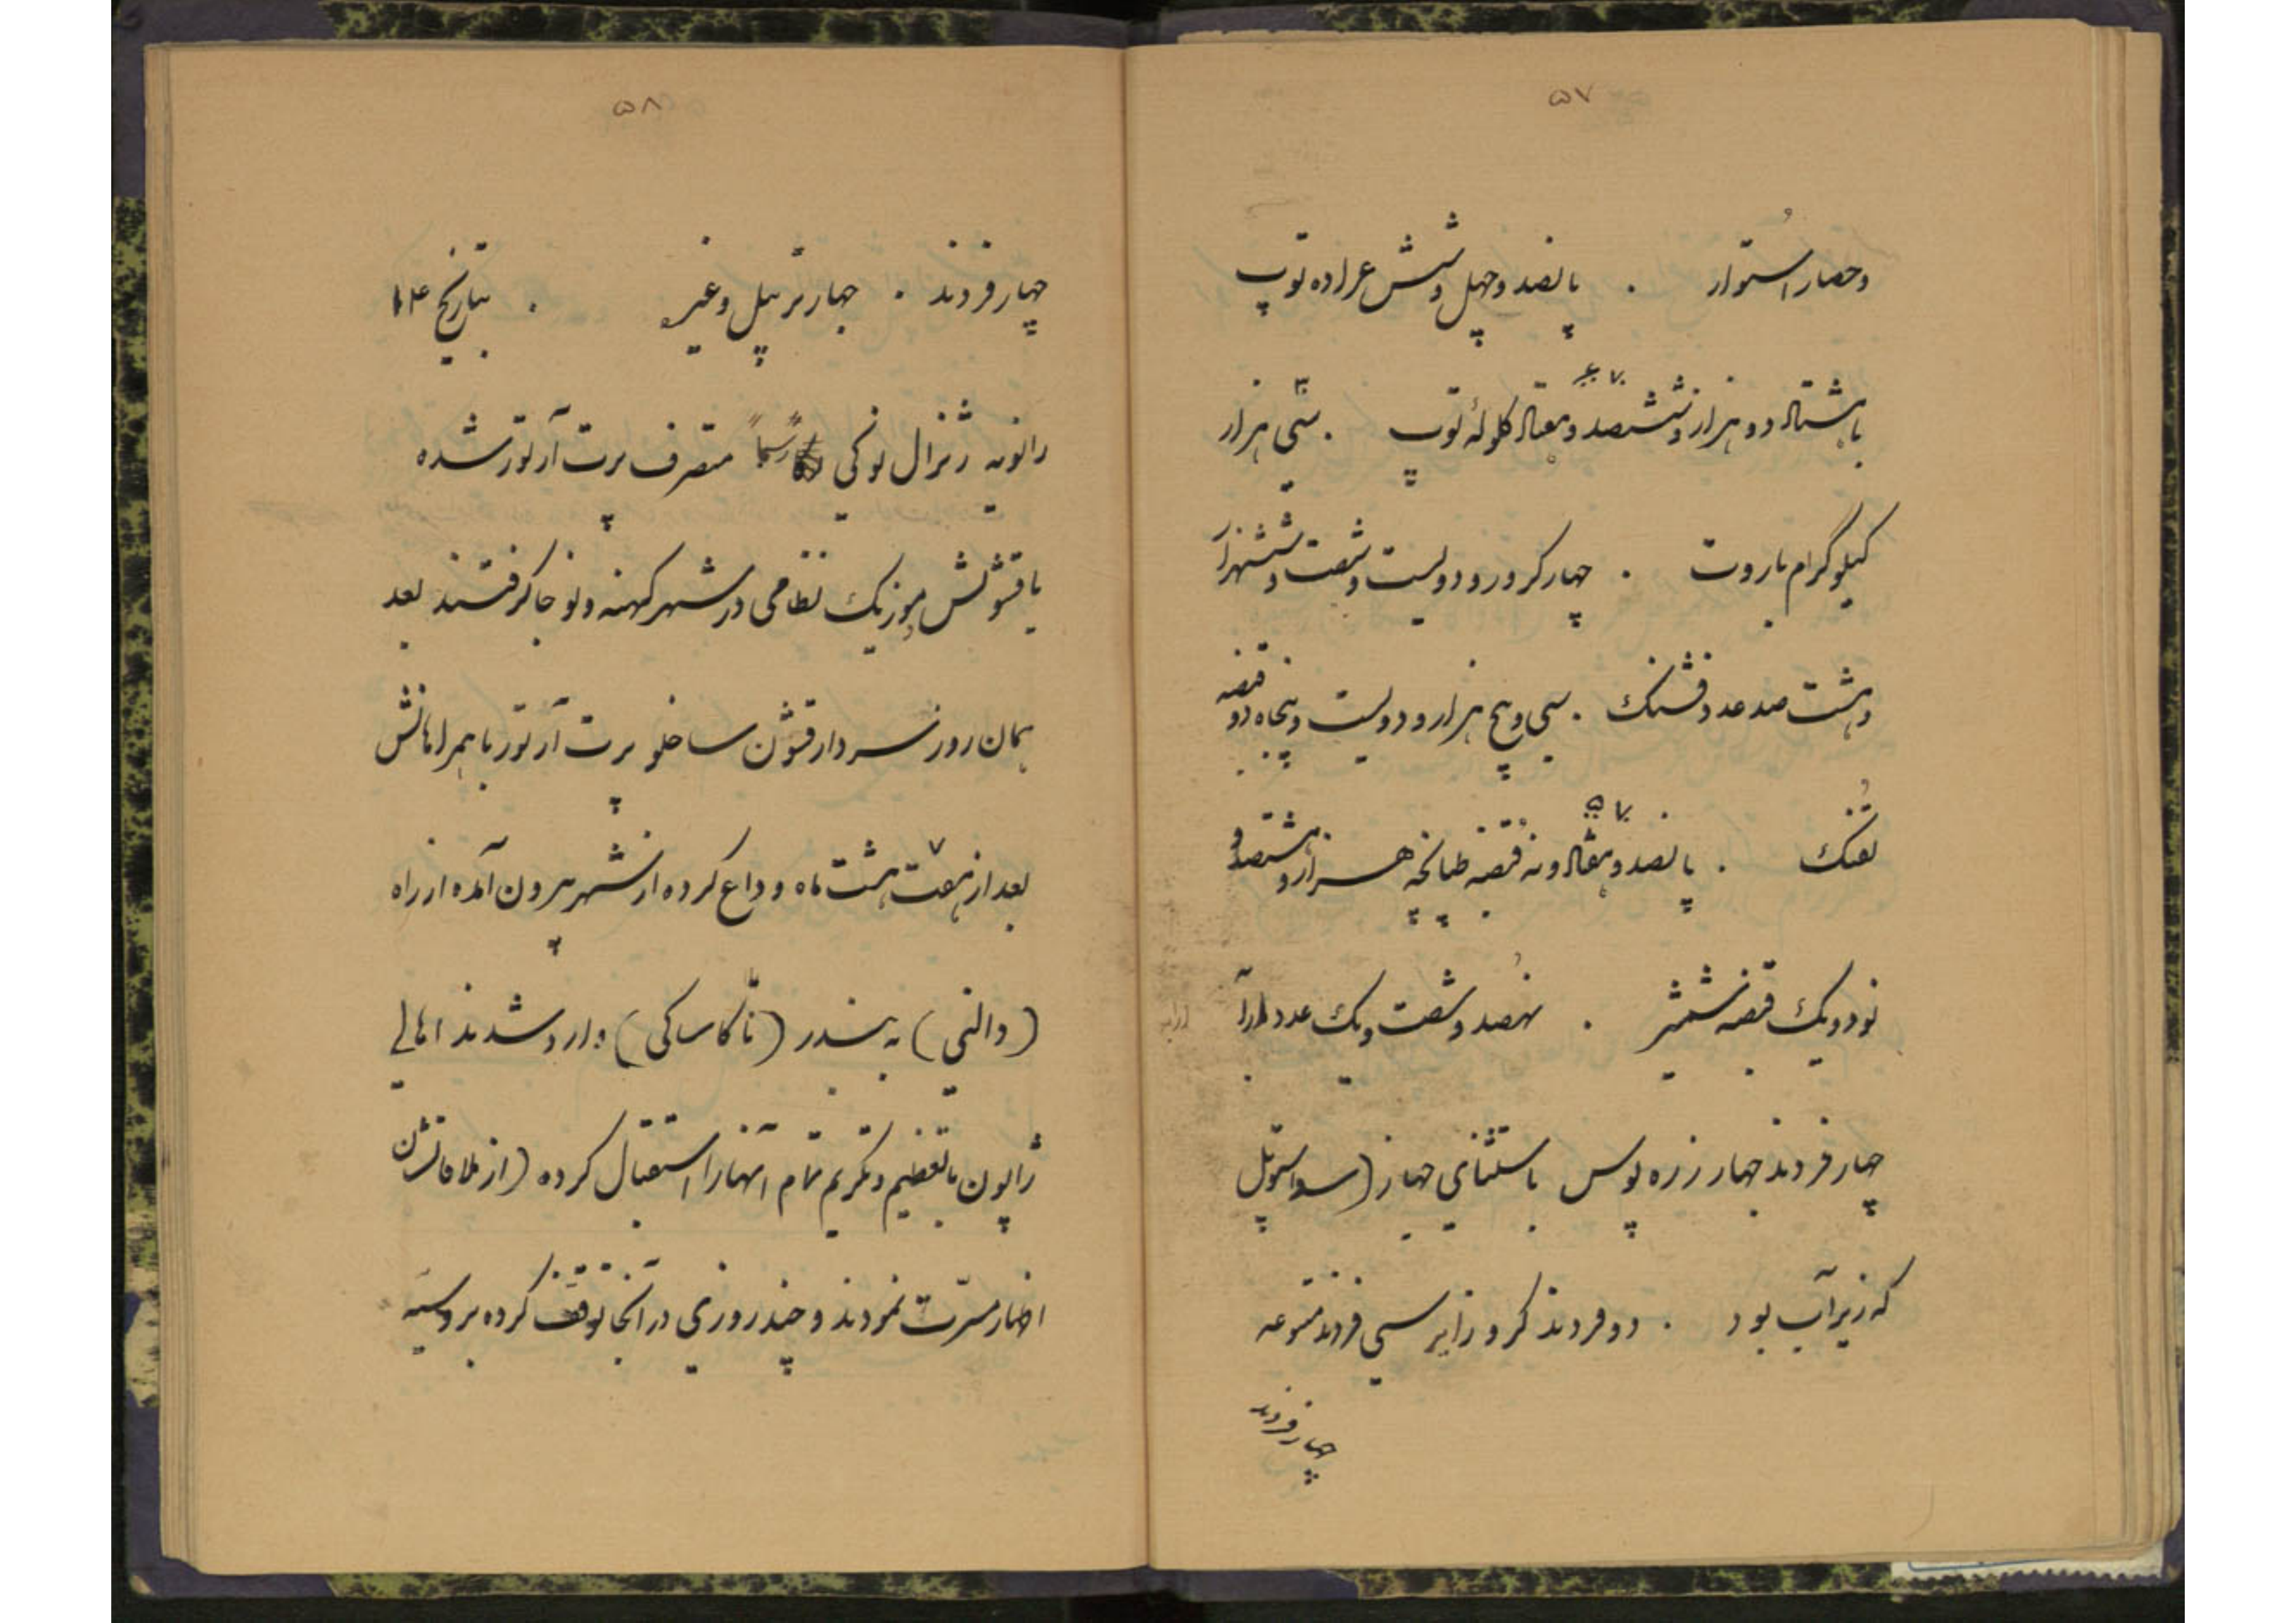 ۵۷
وحصار استوار . پانصد وچهل وشش عراده توپ
با هشتاد دو هزار وششصد وهفتاد گلوله توپ . سی هزار
کیلوگرام باروت . چهار کرور و دویست وشصت وششهزار
وهشت صد عدد فشنک . سی وپنج هزار و دویست وپنجاه دو قبضه
تفنک . پانصد وهفتاد ونه قبضه طپانچه هزار وهشتصد و
نود ویک قبضه شمشیر . نهصد وشصت ویک عدد
چهار فروند جهاز زره پوس باستثنای جهاز (سواستوپل
که زیر آب بود . دو فروند کروزایر سی فروند متنوعه
چهار فروند
۵۸
چهار فروند . جهاز ترپیل وغیره . بتاریخ ۱۴
ژانویه ژنرال نوکی رسماً متصرف پرت آرتور شده
با قشونش موزیک نظامی در شهر کهنه ونو جا گرفتند بعد
همان روز سردار قشون ساخلو پرت آرتور با همراهانش
بعد از هفت هشت ماه وداع کرده از شهر بیرون آمده از راه
(دالنی) به بندر (ناکاساکی) وارد شدند اهالی
ژاپون با تعظیم وتکریم تمام آنها را استقبال کرده (از ملاقاتشان
اظهار مسرّت نمودند و چند روزی در آنجا توقف کرده بروسیه